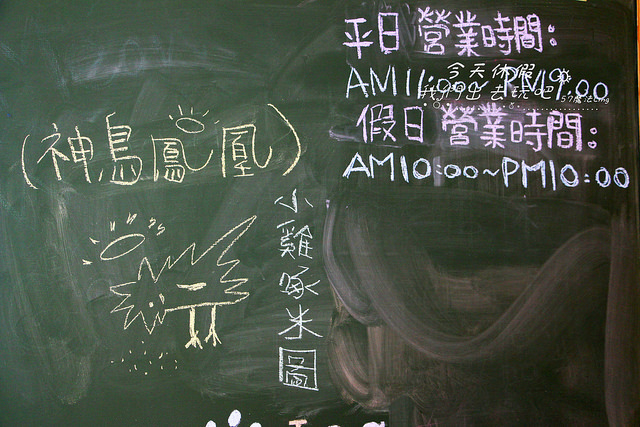 平日營業時間：
AM11:00~PM9:00
今天休假
我們出去玩吧
假日營業時間：
AM10:00~PM10:00
(神鳥鳳凰)
小雞啄米圖